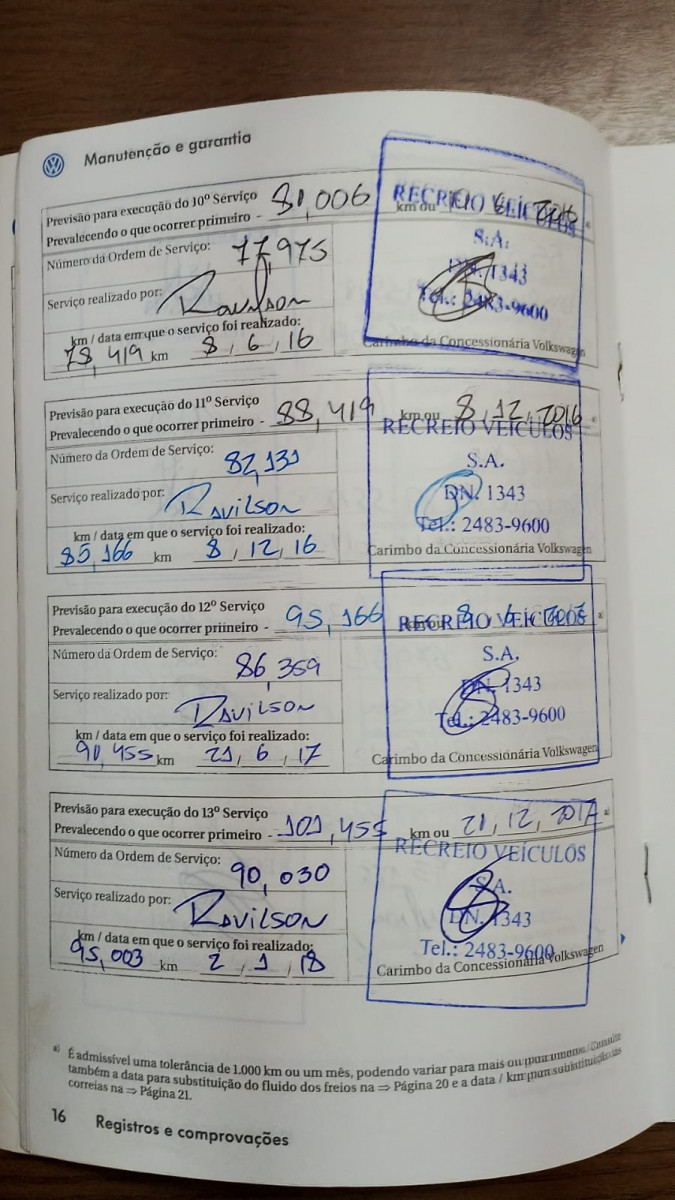 Manutenção e garantia
Previsão para execução do 10º Serviço
Prevalecendo o que ocorrer primeiro - 81,006 km ou 6 2016 a)
RECREIO VEÍCULOS
Número da Ordem de Serviço: 77,975
S.A.
DN. 1343
Serviço realizado por: Ravilson
Tel.: 2483-9600
km / data em que o serviço foi realizado:
78,419 km 8, 6, 16
Carimbo da Concessionária Volkswagen
Previsão para execução do 11º Serviço
Prevalecendo o que ocorrer primeiro - 88,419 km ou 8, 12, 2016 a)
RECREIO VEÍCULOS
Número da Ordem de Serviço: 82,131
S.A.
Serviço realizado por: Ravilson
DN. 1343
Tel.: 2483-9600
km / data em que o serviço foi realizado:
85,166 km 8, 12, 16
Carimbo da Concessionária Volkswagen
Previsão para execução do 12º Serviço
Prevalecendo o que ocorrer primeiro - 95,166 km ou 8 6 2017 a)
RECREIO VEÍCULOS
Número da Ordem de Serviço: 86,359
S.A.
DN. 1343
Serviço realizado por: Ravilson
Tel.: 2483-9600
km / data em que o serviço foi realizado:
90,455 km 21, 6, 17
Carimbo da Concessionária Volkswagen
Previsão para execução do 13º Serviço
Prevalecendo o que ocorrer primeiro - 101,455 km ou 21, 12, 2017 a)
RECREIO VEÍCULOS
Número da Ordem de Serviço: 90,030
S.A.
Serviço realizado por: Ravilson
DN. 1343
Tel.: 2483-9600
km / data em que o serviço foi realizado:
95,003 km 2, 1, 18
Carimbo da Concessionária Volkswagen
a) É admissível uma tolerância de 1.000 km ou um mês, podendo variar para mais ou para menos. Consulte
também a data para substituição do fluido dos freios na ⇒ Página 20 e a data / km para substituição das
correias na ⇒ Página 21.
16 Registros e comprovações